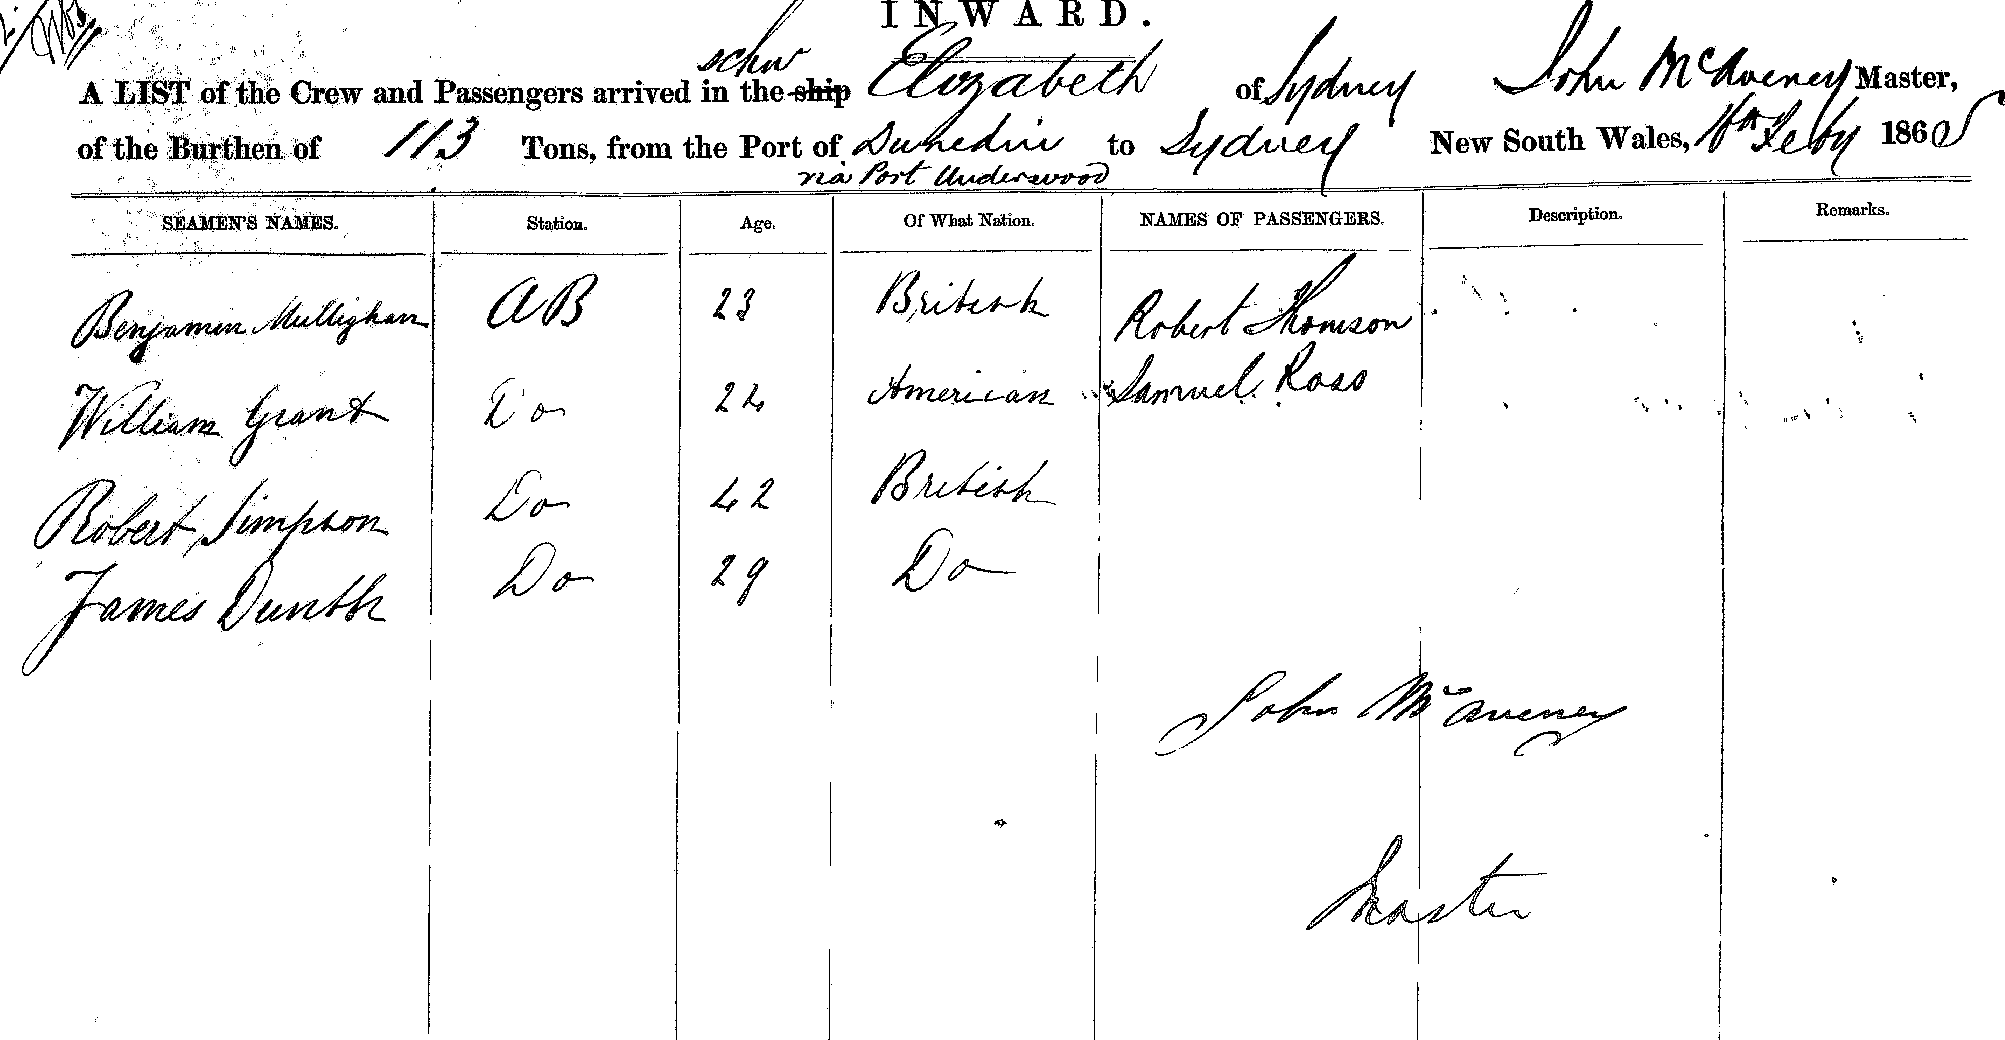 INWARD.
schr
A LIST of the Crew and Passengers arrived in the ship Elizabeth of Sydney John McAveney Master,
of the Burthen of 113 Tons, from the Port of Dunedin to Sydney New South Wales, Feby 1865
via Port Underwood
SEAMEN'S NAMES. Station. Age. Of What Nation. NAMES OF PASSENGERS. Description. Remarks.
Benjamin Mullighan AB 23 British Robert Thomson
William Grant Do 24 American Samuel Ross
Robert Simpson Do 42 British
James Do 29 Do
John McAveney
Master